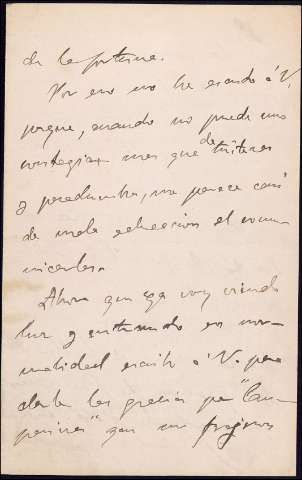 de la fortuna.
Por eso no he escrito á V,
porque, cuando no puede uno
contagiar mas que de tristezas
y pesadumbre, me parece casi
de mala educacion el comu-
nicarlas.
Ahora que ya voy viendo
luz y entrando en nor-
malidad escribo á V. para
darle las gracias por "Cam-
pesinas" que un